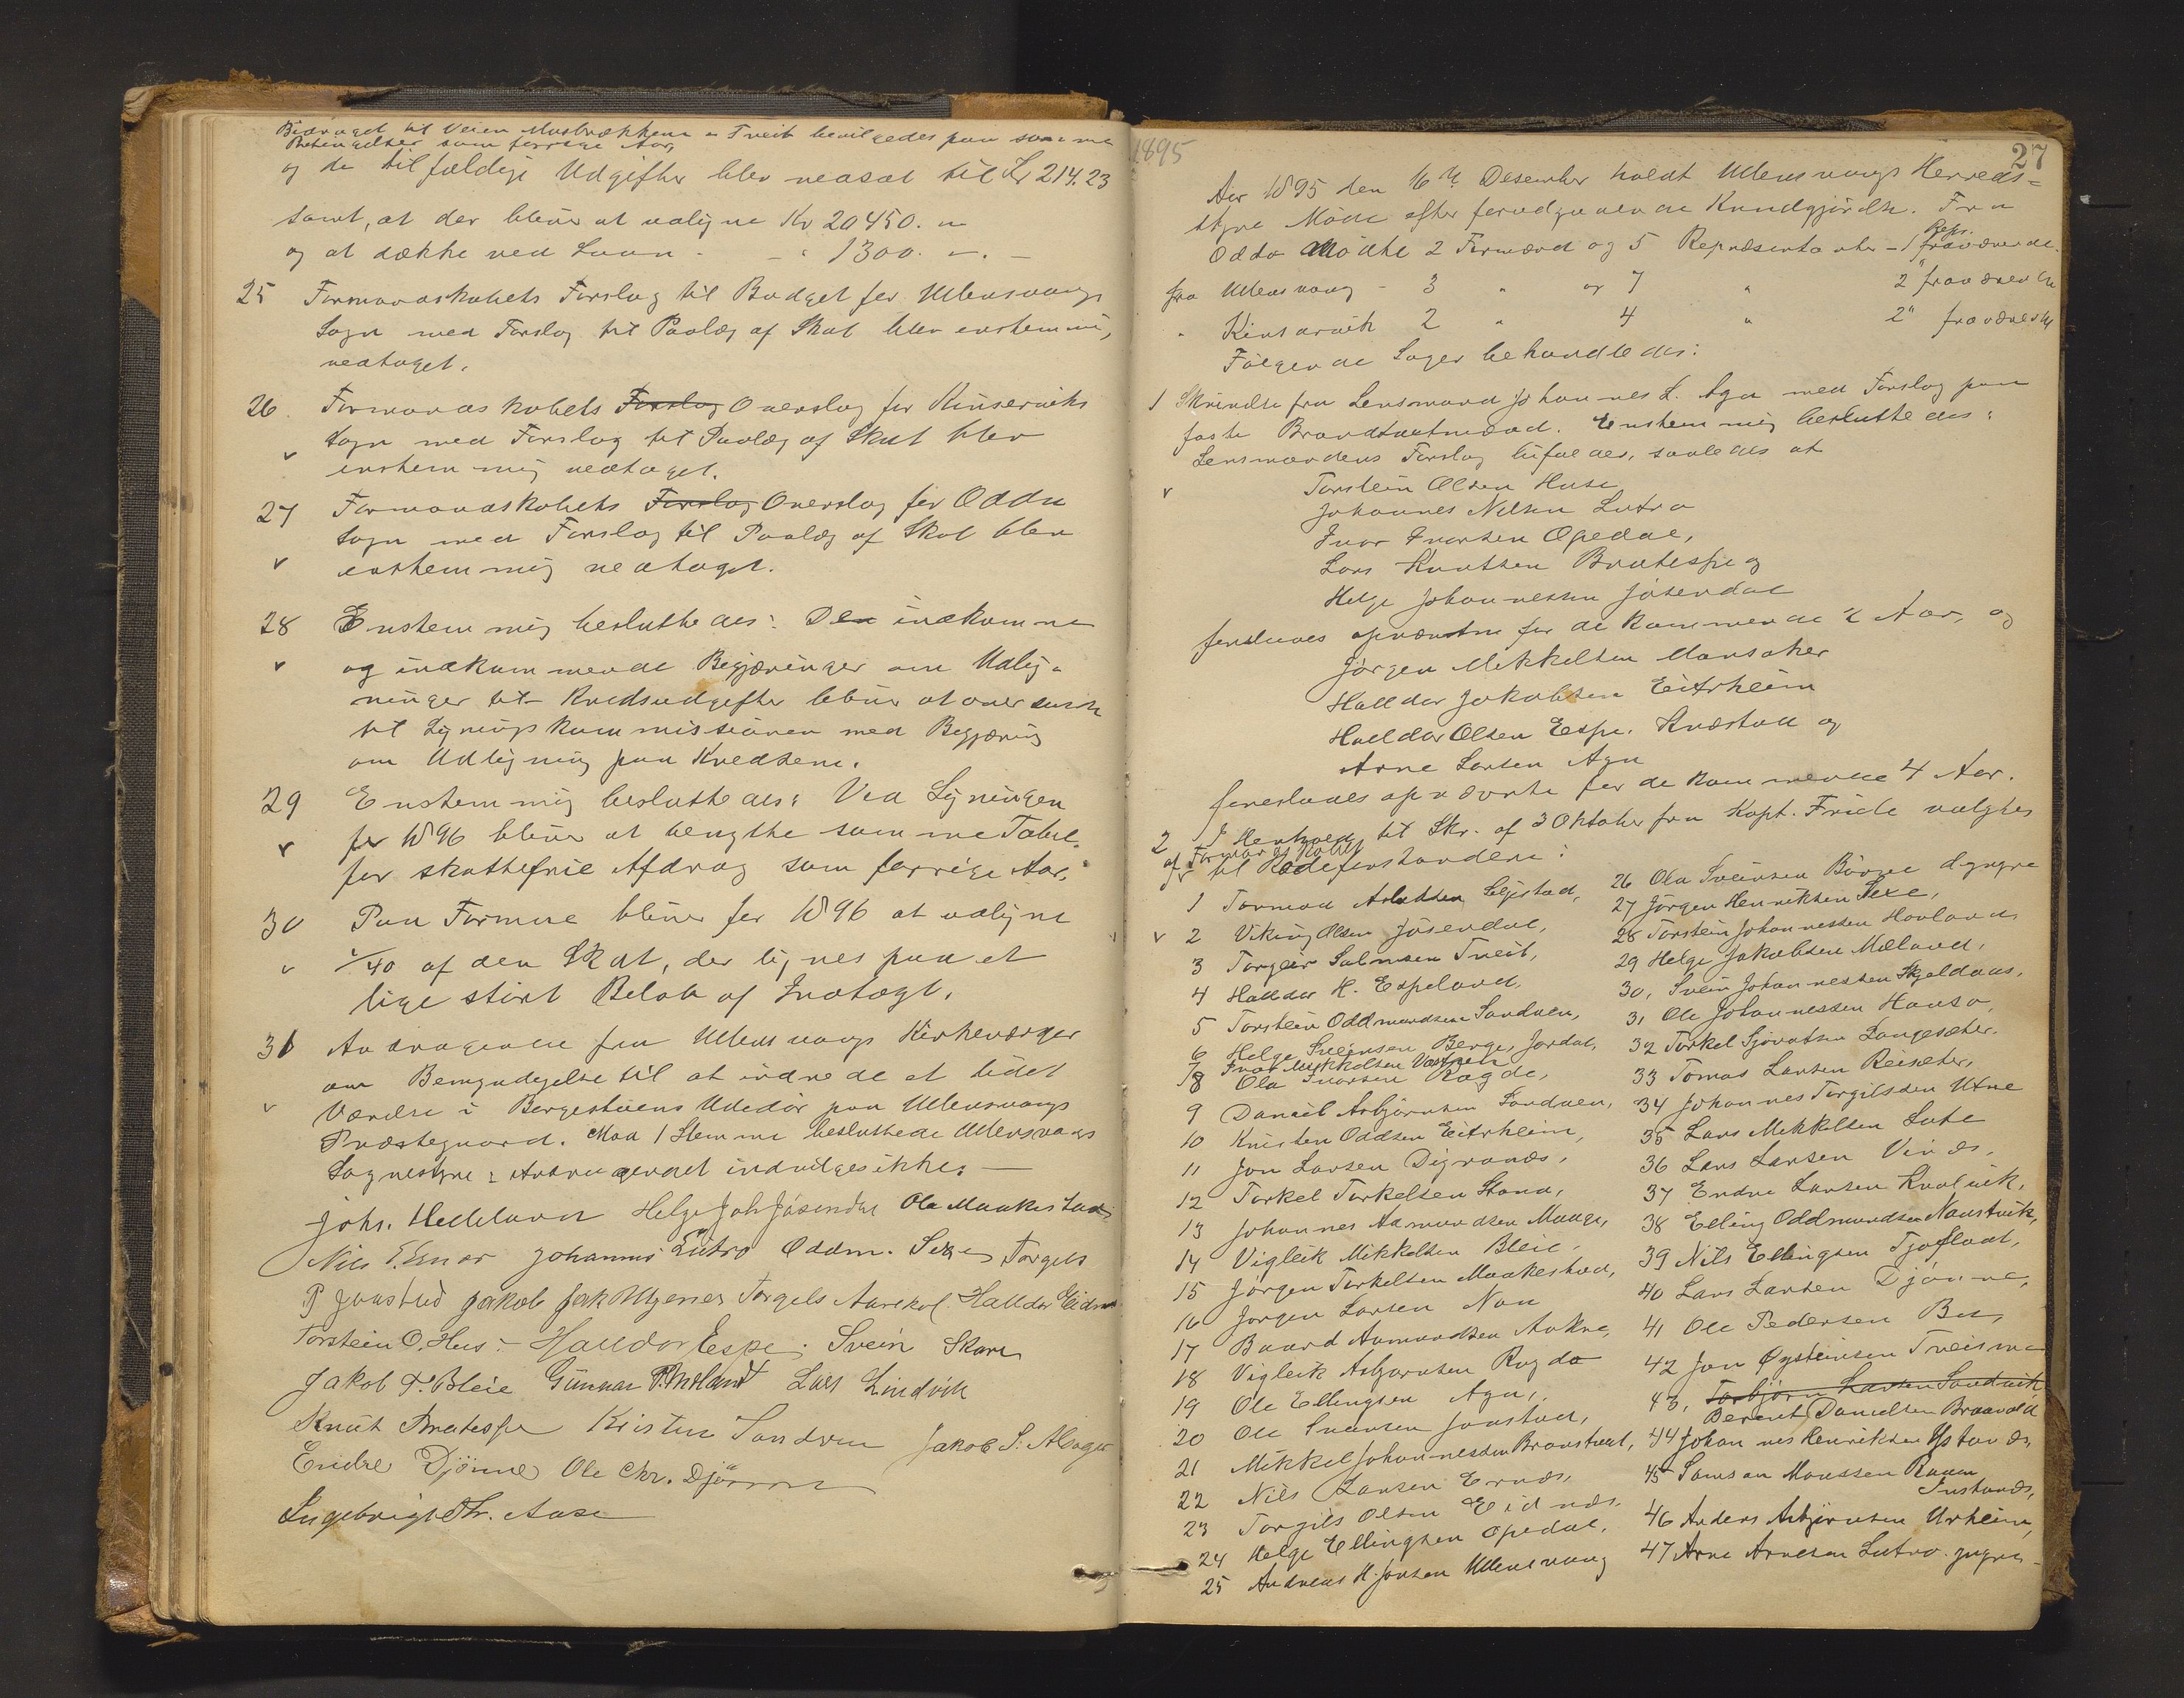 Bidraget til Veien Mosbrækkene - Treit bevilgedes paa samme
Betingelser som forrige Aar,
og de tilfældige Udgifter blev nedsat til Kr 214.23
samt, at der bliver at udligne Kr 20450. "
og at dække ved Laan - - " 1300. -. -
25 Formandskabets Forslag til Budget for Ullensvangs
Sogn med Forslag til Paalæg af Skat blev enstemmi,
vedtaget.
26. Formandskabets Forslag Overslag for Kinserviks
Sogn med Forslag til Paalæg af Skat blev
v enstemmig vedtaget.
27 Formandskabets Forslag Overslag for Odda
Sogn med Forslag til Paalæg af Skat blev
v enstemmig vedtaget.
28 Enstemmig besluttedes: Den indkomne
v og indkommende Begjæringer om Udlig-
ninger til Kredsudgifter bliver at oversende
til Ligningskommissionen med Begjæring
om Udligning paa Kredsene.
29 Enstemmig besluttedes: Ved Ligningen
v for 1896 bliver at benytte samme Tabel
for skattefrie Afdrag som forrige Aar.
30 Paa Formue bliver for 1896 at udligne
v 1/40 af den Skat, der lignes paa et
lige stort Beløb af Indtægt.
31 Andragende fra Ullensvangs Kirkeværger
om Bemyndigelse til at indrede et lidet
v Værelse i Borgestuens Udedør paa Ullensvangs
Præstegaard. Mod 1 Stemme besluttede Ullensvangs
Sognestyre: Andragendet indvilges ikke. —
Johs. Helleland Helge Joh Jösendal Ola Maakestad
Nils T. Ernes Johannes Lutro Oddm. Sexe Torgils
P Jaastad Jakob Jak Mogenes Torgils Aarekol Halldor Eidnes
Torstein O. Hus - Halldor Espe. Svein Skare
Jakob T. Bleie Gunnar P. Meland Lars Lindvik
Knut Bratespe Kristen Sandven Jakob S. Alsager
Endre Djönne Ole Chr. Djönne
Ingebrigt Th. Aase
1895
27
Aar 1895 den 16de Desember holdt Ullensvangs Herreds-
styre Möde efter forudgaaende Kundgjörelse. Fra
Odda Mödte 2 Formænd og 5 Repræsentanter - 1 Repr. fraværende.
fra Ullensvang - 3 " og 7 " 2 " fraværende
" Kinsarvik 2 " 4 " 2 " fraværende
Fölgende Sager behandledes:
1 Skrivelse fra Lensmand Johannes L. Aga med Forslag paa
faste Brandtaxtmænd. Enstemmig besluttedes:
Lensmandens Forslag bifaldes, saaledes at
v Torstein Olsen Huse
Johannes Nilsen Lutro
Ivar Ivarsen Opedal,
Lars Knutsen Bratespe og
Helge Johannessen Jösendal
foreslaaes opnævnte for de kommende 2 Aar, og
Jörgen Mikkelsen Mansaker
Halldor Jakobsen Eitrheim
Halldor Olsen Espe. Kvæstad og
Arne Larsen Aga
foreslaaes opnævnte for de kommende 4 Aar.
2 I Henhold til Skr. af 3 Oktober fra Kapt. Friele valgtes
af Formandskabet
for til Rodeforstandere:
1 Tormod Aslaksen Seljestad,
v 2 Viking Olsen Jösendal,
3 Torgeir Salmsen Treit,
4 Halldor H. Espeland,
5 Torstein Oddmundsen Sandven,
6 Helge Sveinsen Berge, Jordal,
7 Ivar Mikkelsen Vastun
8 Ola Ivarsen Ragde,
9 Daniel Asbjörnsen Sandven,
10 Kristen Oddsen Eitrheim,
11 Jon Larsen Digranæs,
12 Torkel Torkelsen Stana,
13 Johannes Aamundsen Maage,
14 Vigleik Mikkelsen Bleie,
15 Jörgen Torkelsen Maakestad,
16 Jörgen Larsen Naa
17 Baard Aamundsen Ankre,
18 Vigleik Asbjörnsen Ragde
19 Ole Ellingsen Aga,
20 Ole Svensen Jaastad,
21 Mikkel Johannessen Braastveit,
22 Nils Larsen Ernæs,
23 Torgils Olsen Eidnæs.
24 Helge Ellingsen Opedal,
25 Andreas H. Jonsen Ullensvang
26 Ola Sveinsen Börve d yngre
27 Jörgen Henriksen Sexe,
28 Torstein Johannessen Hovland,
29 Helge Jakobsen Mæland,
30, Svein Johannessen Skjeldaas,
31 Ole Johannessen Hauso,
32 Torkel Sjovatsen Langesæter.
33 Tomas Larsen Reisæter,
34 Johannes Torgilsen Utne
35 Lars Mikkelsen Lote
36 Lars Larsen Vinæs,
37 Endre Larsen Kvalvik,
38 Elling Oddmundsen Naustvik,
39 Nils Ellingsen Tjoflaat,
40 Lars Larsen Djönne,
41 Ole Pedersen Bu,
42 Jon Øysteinsen Treisme
43, Torbjörn Larsen Sandvik
Berent Danielsen Braavold
44 Johannes Henriksen Ystanæs,
45 Samson Monssen Raaen
Instanæs,
46 Anders Asbjörnsen Urheim,
47 Arne Arnesen Lutro. yngre -